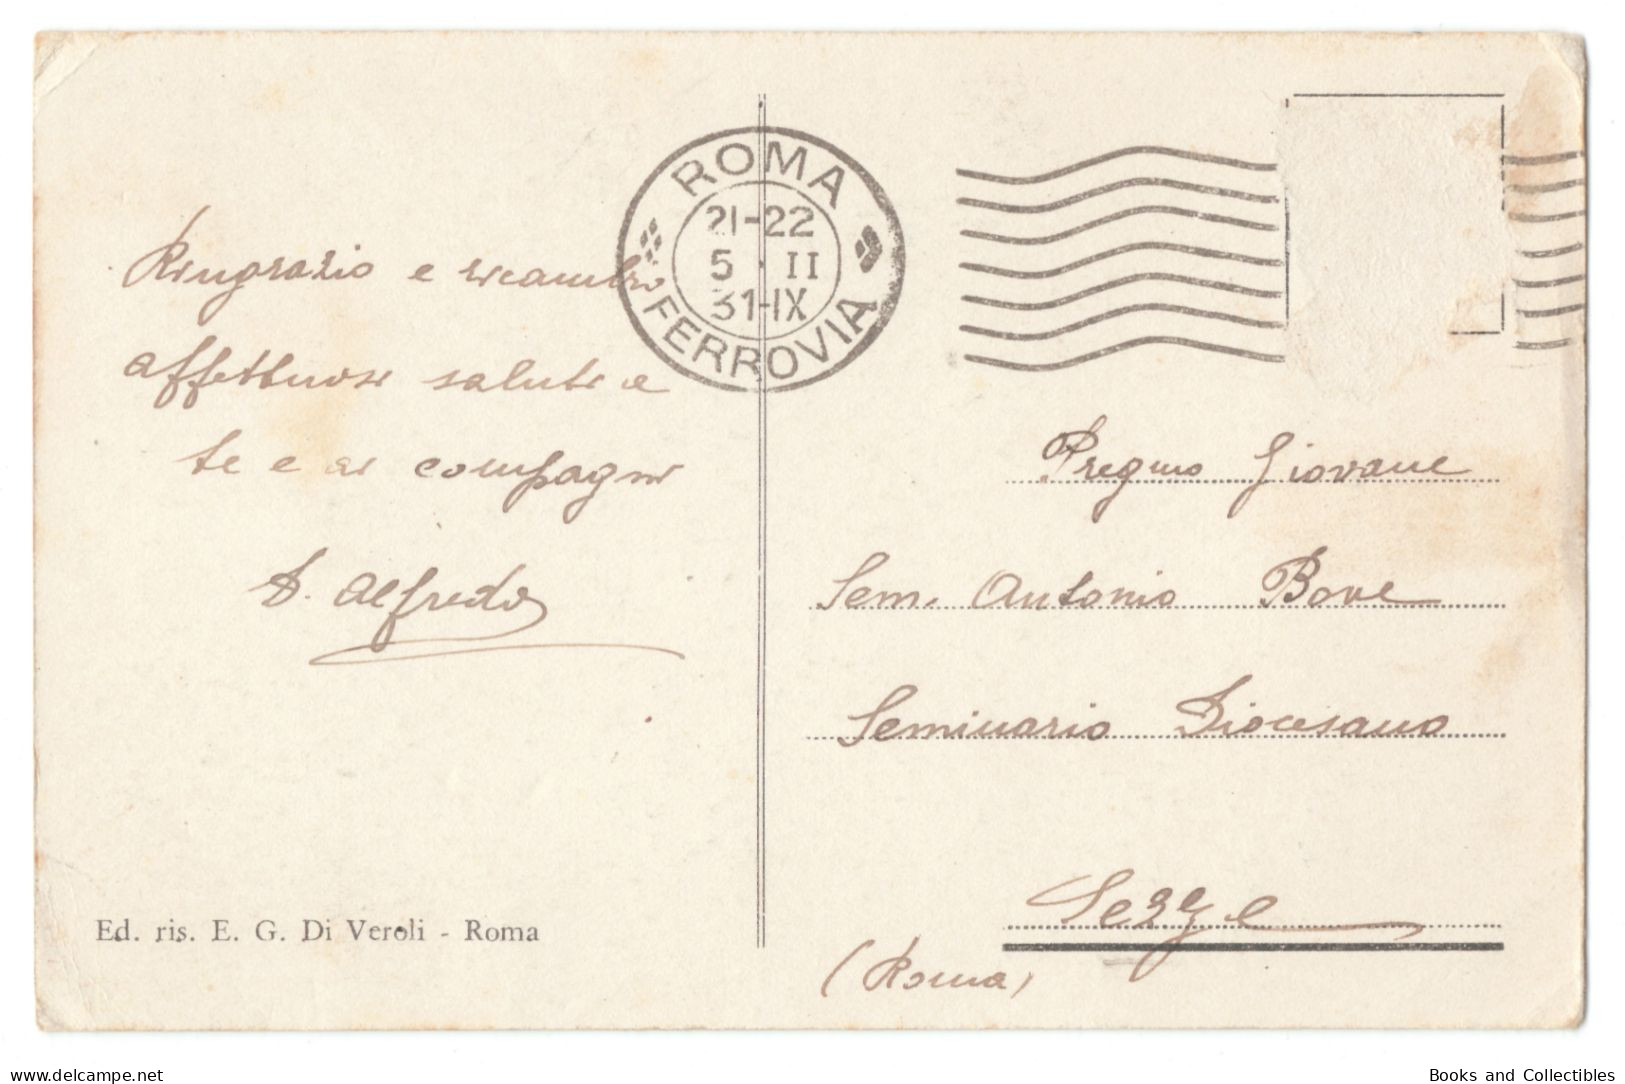 ROMA
21-22
5 · II
31-IX
FERROVIA
Ringrazio e ricambio
affettuosi saluti a
te e ai compagni
D. Alfredo
Ed. ris. E. G. Di Veroli - Roma
Pregmo Giovane
Sem. Antonio Bove
Seminario Diocesano
Sezze
(Roma)
delcampe.net
Books and Collectibles